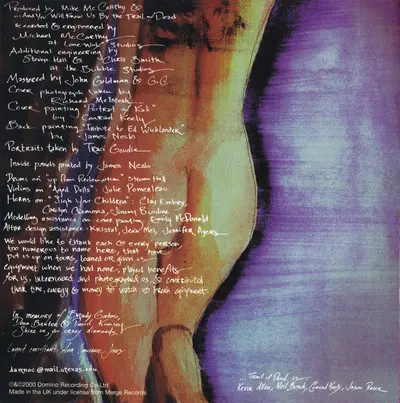 Produced by Mike McCarthy &
...And You Will Know Us By the Trail of Dead
Recorded & engineered by
Michael McCarthy
at Lone Wolf Studios
Additional engineering by
Steam Hall & Chris Smith
at the Bubble Studios
Mastered by John Goldman & G.G.
Cover photograph taken by
Richard McIntosh
Cover painting "Portrait of Kali"
by Conrad Keely
Back painting "Tribute to Ed Wicklander"
James Neslo
Portraits taken by Traci Goudie
Inside panels painted by James Neslo
Drums on "up from Redemption" Steam Hall
Violins on "Aged Dolls" Julie Pomerleau
Horns on "High Your Children": Clay Embry,
Carolyn Cremona, Jimmy Burdine
Modelling assistance on cover painting Emily McDonald
Altar design assistance: Kristal, Jean Mei, Jennifer Ayers
We would like to thank each & every person
too numerous to name here, that have
put us up on tours, loaned or given us
equipment when we had none, played benefits
for us, interviewed and photographed us & contributed
their time, energy & money to watch us break equipment.
In memory of
& David Kimsey
Shine on, you crazy diamonds
damnoc@mail.utexas.edu
℗&©2000 Domino Recording Co Ltd.
Made in the UK under license from Merge Records
Trail of Dead is
Kevin Allen, Neil Busch, Conrad Keely, Jason Reece